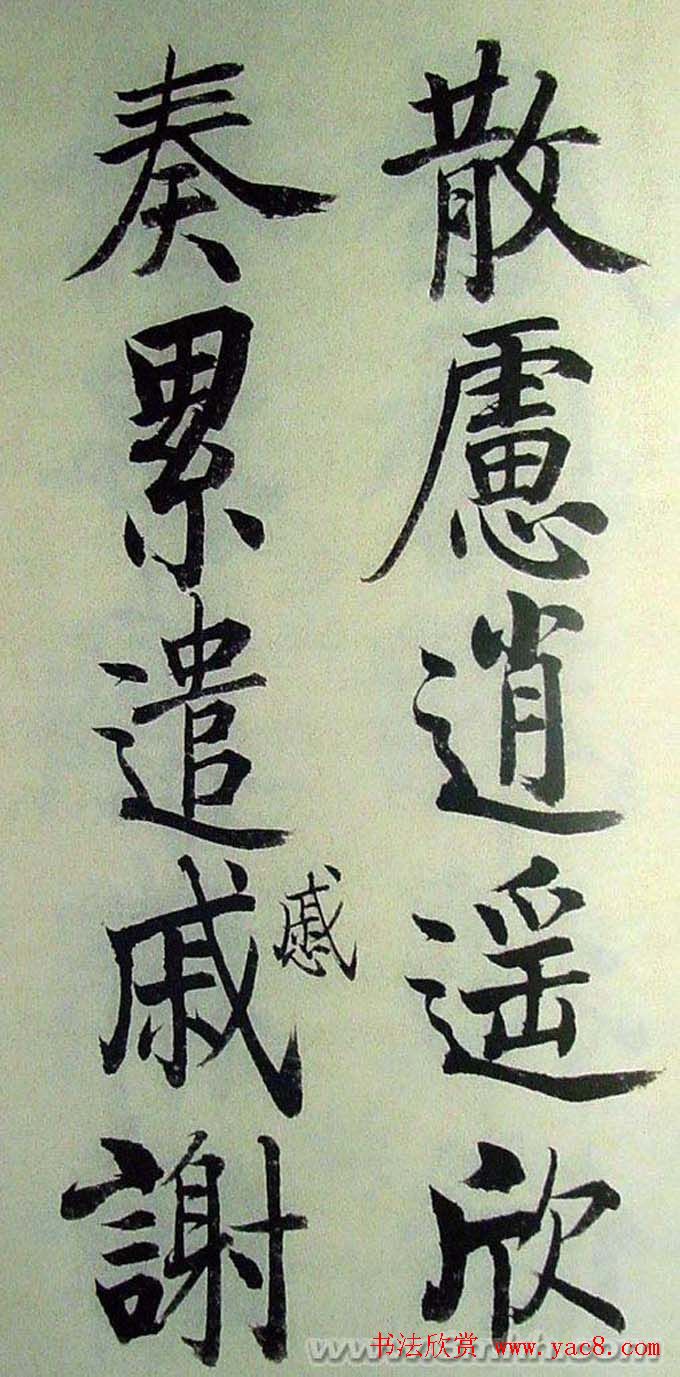 散慮逍遥欣
奏累遣戚謝
慼
书法欣赏 www.yac8.com